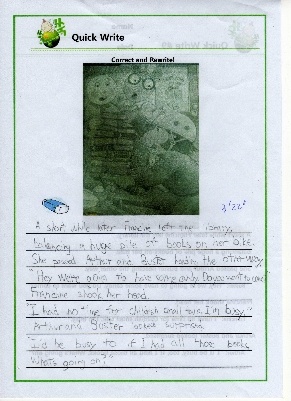 Quick Write
Correct and Rewrite!
A short while later Francine left the library,
balancing a huge pile of books on her bike.
She passed Arthur and Buster heading the other way.
"Hey were going to have some candy. Do you want to come
Francine shook her head.
"I had no time for children small talk. I'm busy."
Arthur and Buster looked surprised.
"I'd be busy to if I had all those books.
What's going on?"